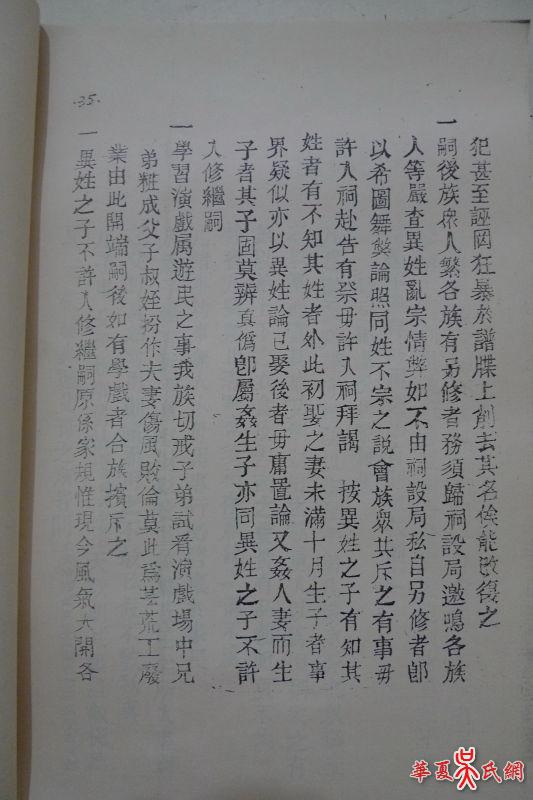 35.
犯甚至誣罔狂暴於譜牒上削去其名俟能改復之
一嗣後族衆人繁各族有另修者務須歸祠設局邀鳴各族
人等嚴查異姓亂宗情弊如不由祠設局私自另修者卽
以希圖舞弊論照同姓不宗之說會族眾共斥之有事毋
許入祠赴告有祭毋許入祠拜謁 按異姓之子有知其
姓者有不知其姓者外此初娶之妻未滿十月生子者事
界疑似亦以異姓論已娶後者毋庸置論又姦人妻而生
子者其子固莫辨真僞卽屬姦生子亦同異姓之子不許
入修繼嗣
一學習演戲属遊民之事我族切戒子弟試看演戲場中兄
弟粧成父子叔姪扮作夫妻傷風敗倫莫此爲甚荒工廢
業由此開端嗣後如有學戲者合族擯斥之
一異姓之子不許入修繼嗣原係家規惟現今風氣大開各
華夏吴氏網